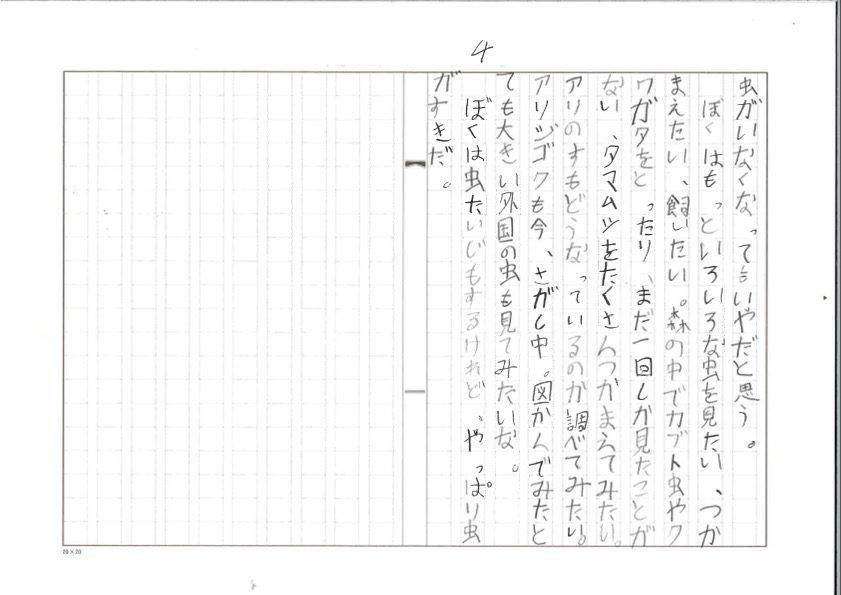 4
虫がいなくなっていやだと思う。
ぼくはもっといろいろな虫を見たい、つか
まえたい、飼いたい。森の中でカブト虫やク
ワガタをとったり、まだ一回しか見たことが
ない、タマムシをたくさんつかまえてみたい。
アリのすもどうなっているのか調べてみたい。
アリジゴクも今、さがし中。図かんでみたと
ても大きい外国の虫も見てみたいな。
ぼくは虫たいじもするけれど、やっぱり虫
がすきだ。
20×20